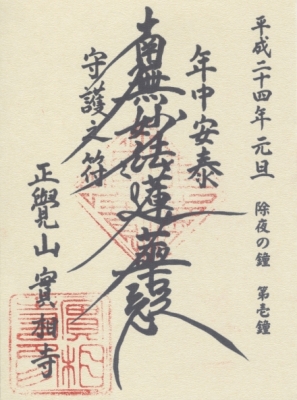 平成二十四年元旦
除夜の鐘 第壱鐘
年中安泰
南無妙法蓮華経
守護之符
正覺山 實相寺